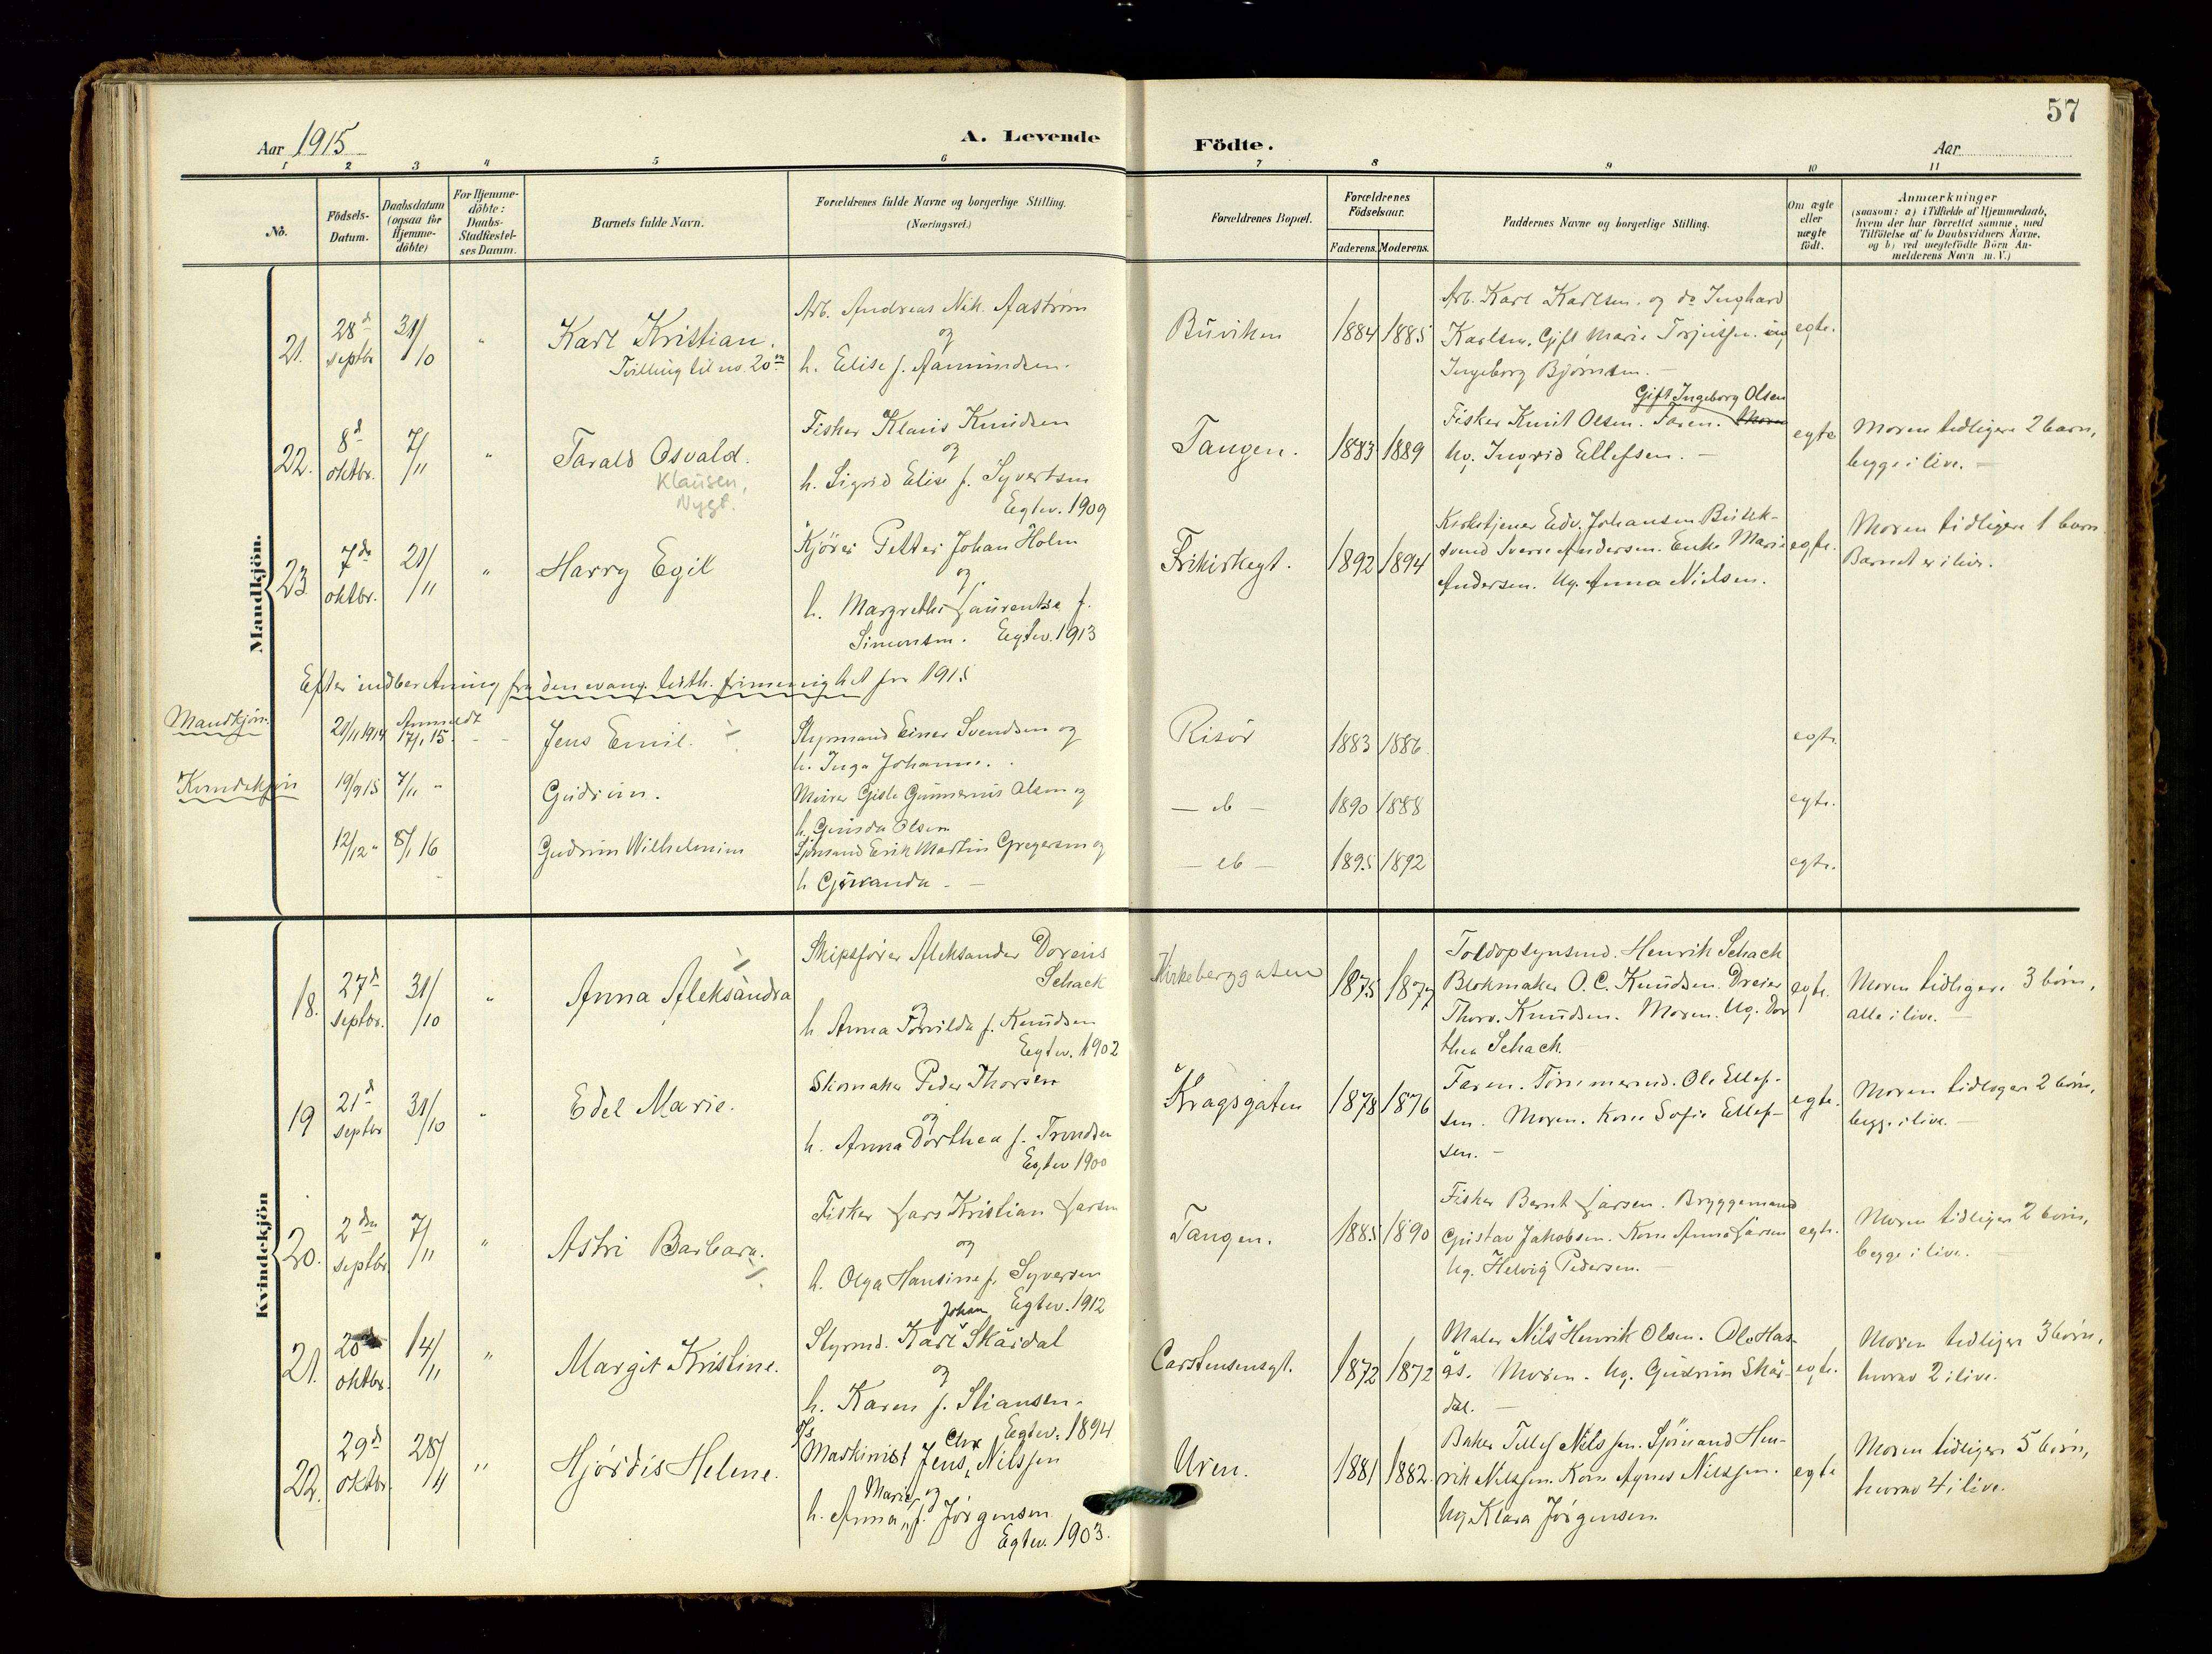 57
Aar 1915
A. Levende Födte.
Aar
1 2 3 4 5 6 7 8 9 10 11
No.
Födsels-Datum.
Daabsdatum (ogsaa for Hjemme-döbte)
For Hjemme-döbte: Daabs-Stadfæstel-ses Datum.
Barnets fulde Navn.
Forældrenes fulde Navne og borgerlige Stilling.
(Næringsvei.)
Forældrenes Bopæl.
Forældrenes Födselsaar.
Faderens. Moderens.
Faddernes Navne og borgerlige Stilling.
Om ægte eller uægte födt.
Anmærkninger
(saasom: a) i Tilfælde af Hjemmedaab,
hvem der har forrettet samme, med
Tilföielse af to Daabsvidners Navne,
og b) ved uægtefödte Börn An-
melderens Navn m. V.)
Mandkjön.
21. 28d septbr 31/10 " Karl Kristian.
Tvilling til no. 20
Arb. Andreas Nik. Aaström
og
h. Elise f. Aamundsen.
Buviken 1884 1885
Arb. Karl Karlsen. og do Inghard
Karlsen. Gift Marie Terjussen. ug.
Ingeborg Bjørnsen. —
egte.
22. 8d oktbr. 7/11 " Tarald Osvald.
Klausen,
Nygt.
Fisker Klaus Knudsen
og
h. Sigrid Elise f. Syvertsen
Egtev. 1909
Tangen. 1883 1889
Gift Ingeborg Olsen
Fisker Knut Olsen. Faren.
Ug. Ingrid Ellefsen. —
egte
Moren tidligere 2 barn,
begge i live. —
23. 7de oktbr. 21/11 " Harry Egil
Kjörer Petter Johan Holm
og
h. Margrethe Laurentse f.
Simonsen. Egtev. 1913
Frikirkegt. 1892 1894
Kirketjener Edv. Johansen Butik-
svend Sverre Andersen. Enke Marie
Andersen. Ug. Anna Nielsen.
egte.
Moren tidligere 1 barn
Barnet er i live.
Efter indberetning fra den evang. luth. frimenighet for 1915
Mandkjön. 21/11 1914 Anmeldt 17/1 15. - - Jens Emil.
Styrmand Einar Svendsen og
h. Inga Johanne.
Risör 1883 1886. egte.
Kvindekjön 19/9 15 7/11 " Gudrun.
Murer Gisle Gunnerius Olsen og
h. Gunda Olsen
— " — 1890 1888 egte.
12/12 " 8/1 16 Gudrun Wilhelmine
Sjömand Erik Martin Gregersen og
h
— " — 1895 1892 egte.
Kvindekjön
18. 27d septbr. 31/10 " Anna Aleksandra
Skipsfører Aleksander Doreus
Schack
og
h Anna Torvilda f. Knudsen
Egtev. 1902
Kirkeberggaten 1875 1877
Toldopsynsmd. Henrik Schack
Blokmaker O. C. Knudsen. Dreier
Thorv. Knudsen. Moren. Ug. Dor
thea Schack.
egte.
Moren tidligere 3 børn,
alle i live. —
19 21d septbr 31/10 " Edel Marie.
Skomaker Peder Thorsen
og
h. Anna Dorthea f. Trondsen
Egtev 1900
Kragsgaten 1878 1876
Faren. Tømmermd. Ole Ellef-
sen. Moren. Kone Sofie Ellef-
sen. —
egte.
Moren tidligere 2 børn,
begge i live. —
20. 2den septbr. 7/11 " Astri Barbara.
Fisker Lars Kristian Larsen
og
h. Olga Hansine f. Syversen
Egtev. 1912
Tangen. 1885 1890
Fisker Bernt Larsen. Bryggemand
Gustav Jakobsen. Kone Anna Larsen
Ug. Helvig Pedersen. —
egte.
Moren tidligere 2 børn,
begge i live.
21. 20d oktbr. 14/11 " Margit Kristine.
Johan
Styrmd. Karl Skårdal
og
h. Karen f. Stiansen.
Egtev. 1894
Carstensensgt. 1872 1872
Maler Nils Henrik Olsen. Ole Has-
ås. Moren. Ug. Gudrun Skår-
dal. —
egte.
Moren tidligere 3 børn,
hvorav 2 i live.
22. 29d oktbr. 28/11 " Hjørdis Helene.
Chr
Maskinist Jens Nilssen
Marie og
h. Anna f. Jørgensen
Egtev. 1903.
Uren. 1881 1882.
Baker Tellef Nilssen. Sjömand Hen-
rik Nilssen. Kone Agnes Nilssen.
Ug. Klara Jørgensen.
egte
Moren tidligere 5 børn,
hvorav 4 i live.